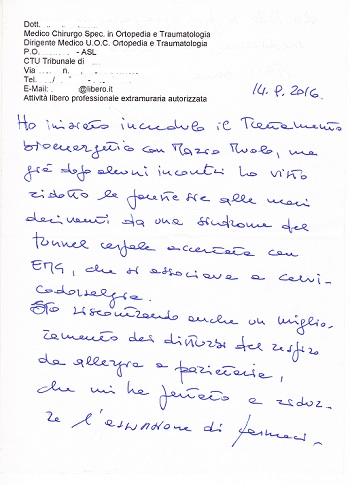 Dott.
Medico Chirurgo Spec. in Ortopedia e Traumatologia
Dirigente Medico U.O.C. Ortopedia e Traumatologia
P.O. - ASL
CTU Tribunale di
Via n.
Tel. /
E-Mail: @libero.it
Attività libero professionale extramuraria autorizzata
14.9.2016.
Ho iniziato incredulo il Trattamento
bioenergetico con Mario Muolo, ma
già dopo alcuni incontri ho visto
ridotto le parestesie alle mani
derivanti da una sindrome del
tunnel carpale accertata con
EMG, che si associava a cervi-
codorsalgia.
Sto riscontrando anche un miglio-
ramento dei disturbi del respiro
da allergia a parietaria,
che mi ha portato a ridur-
re l'assunzione di farmaci.